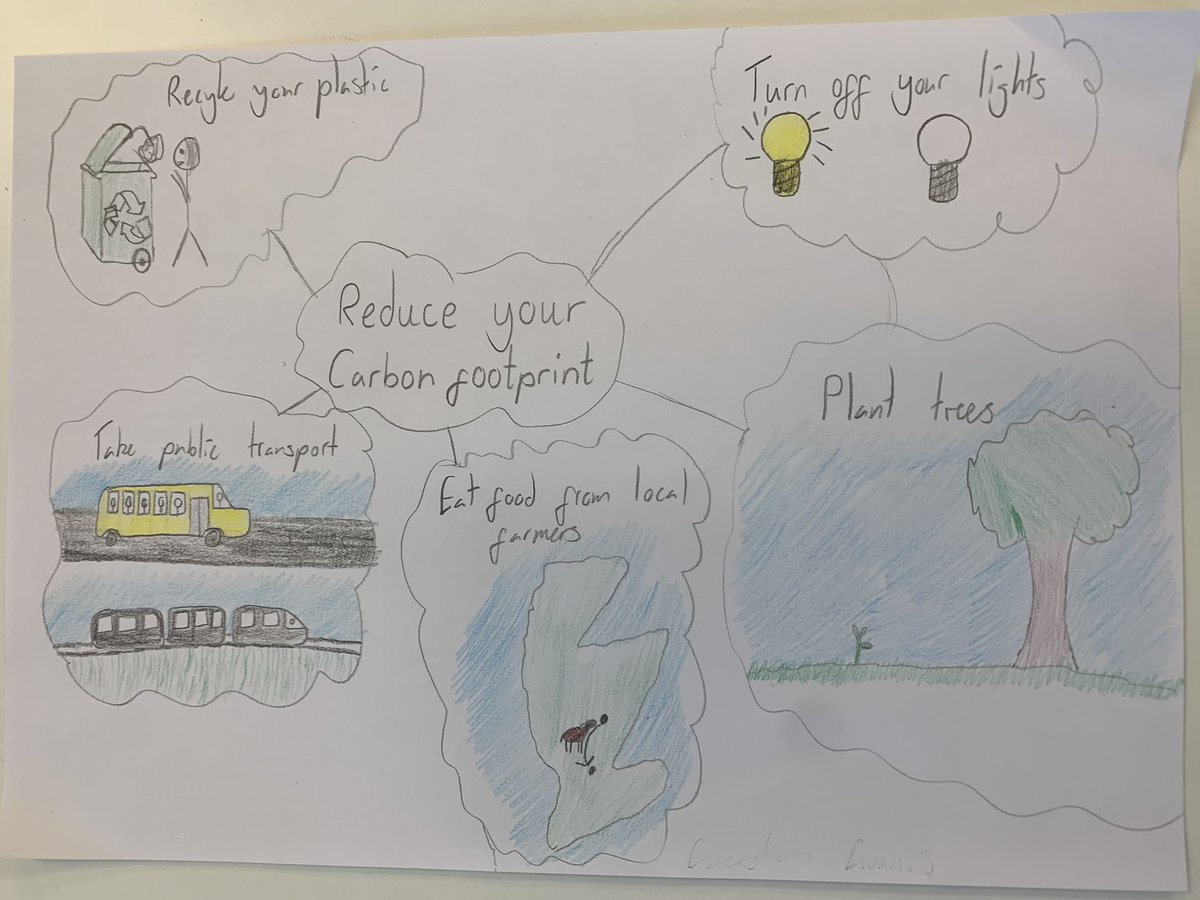 Recyle your plastic
Turn off your lights
Reduce your
Carbon footprint
Plant trees
Take public transport
Eat food from local
farmers